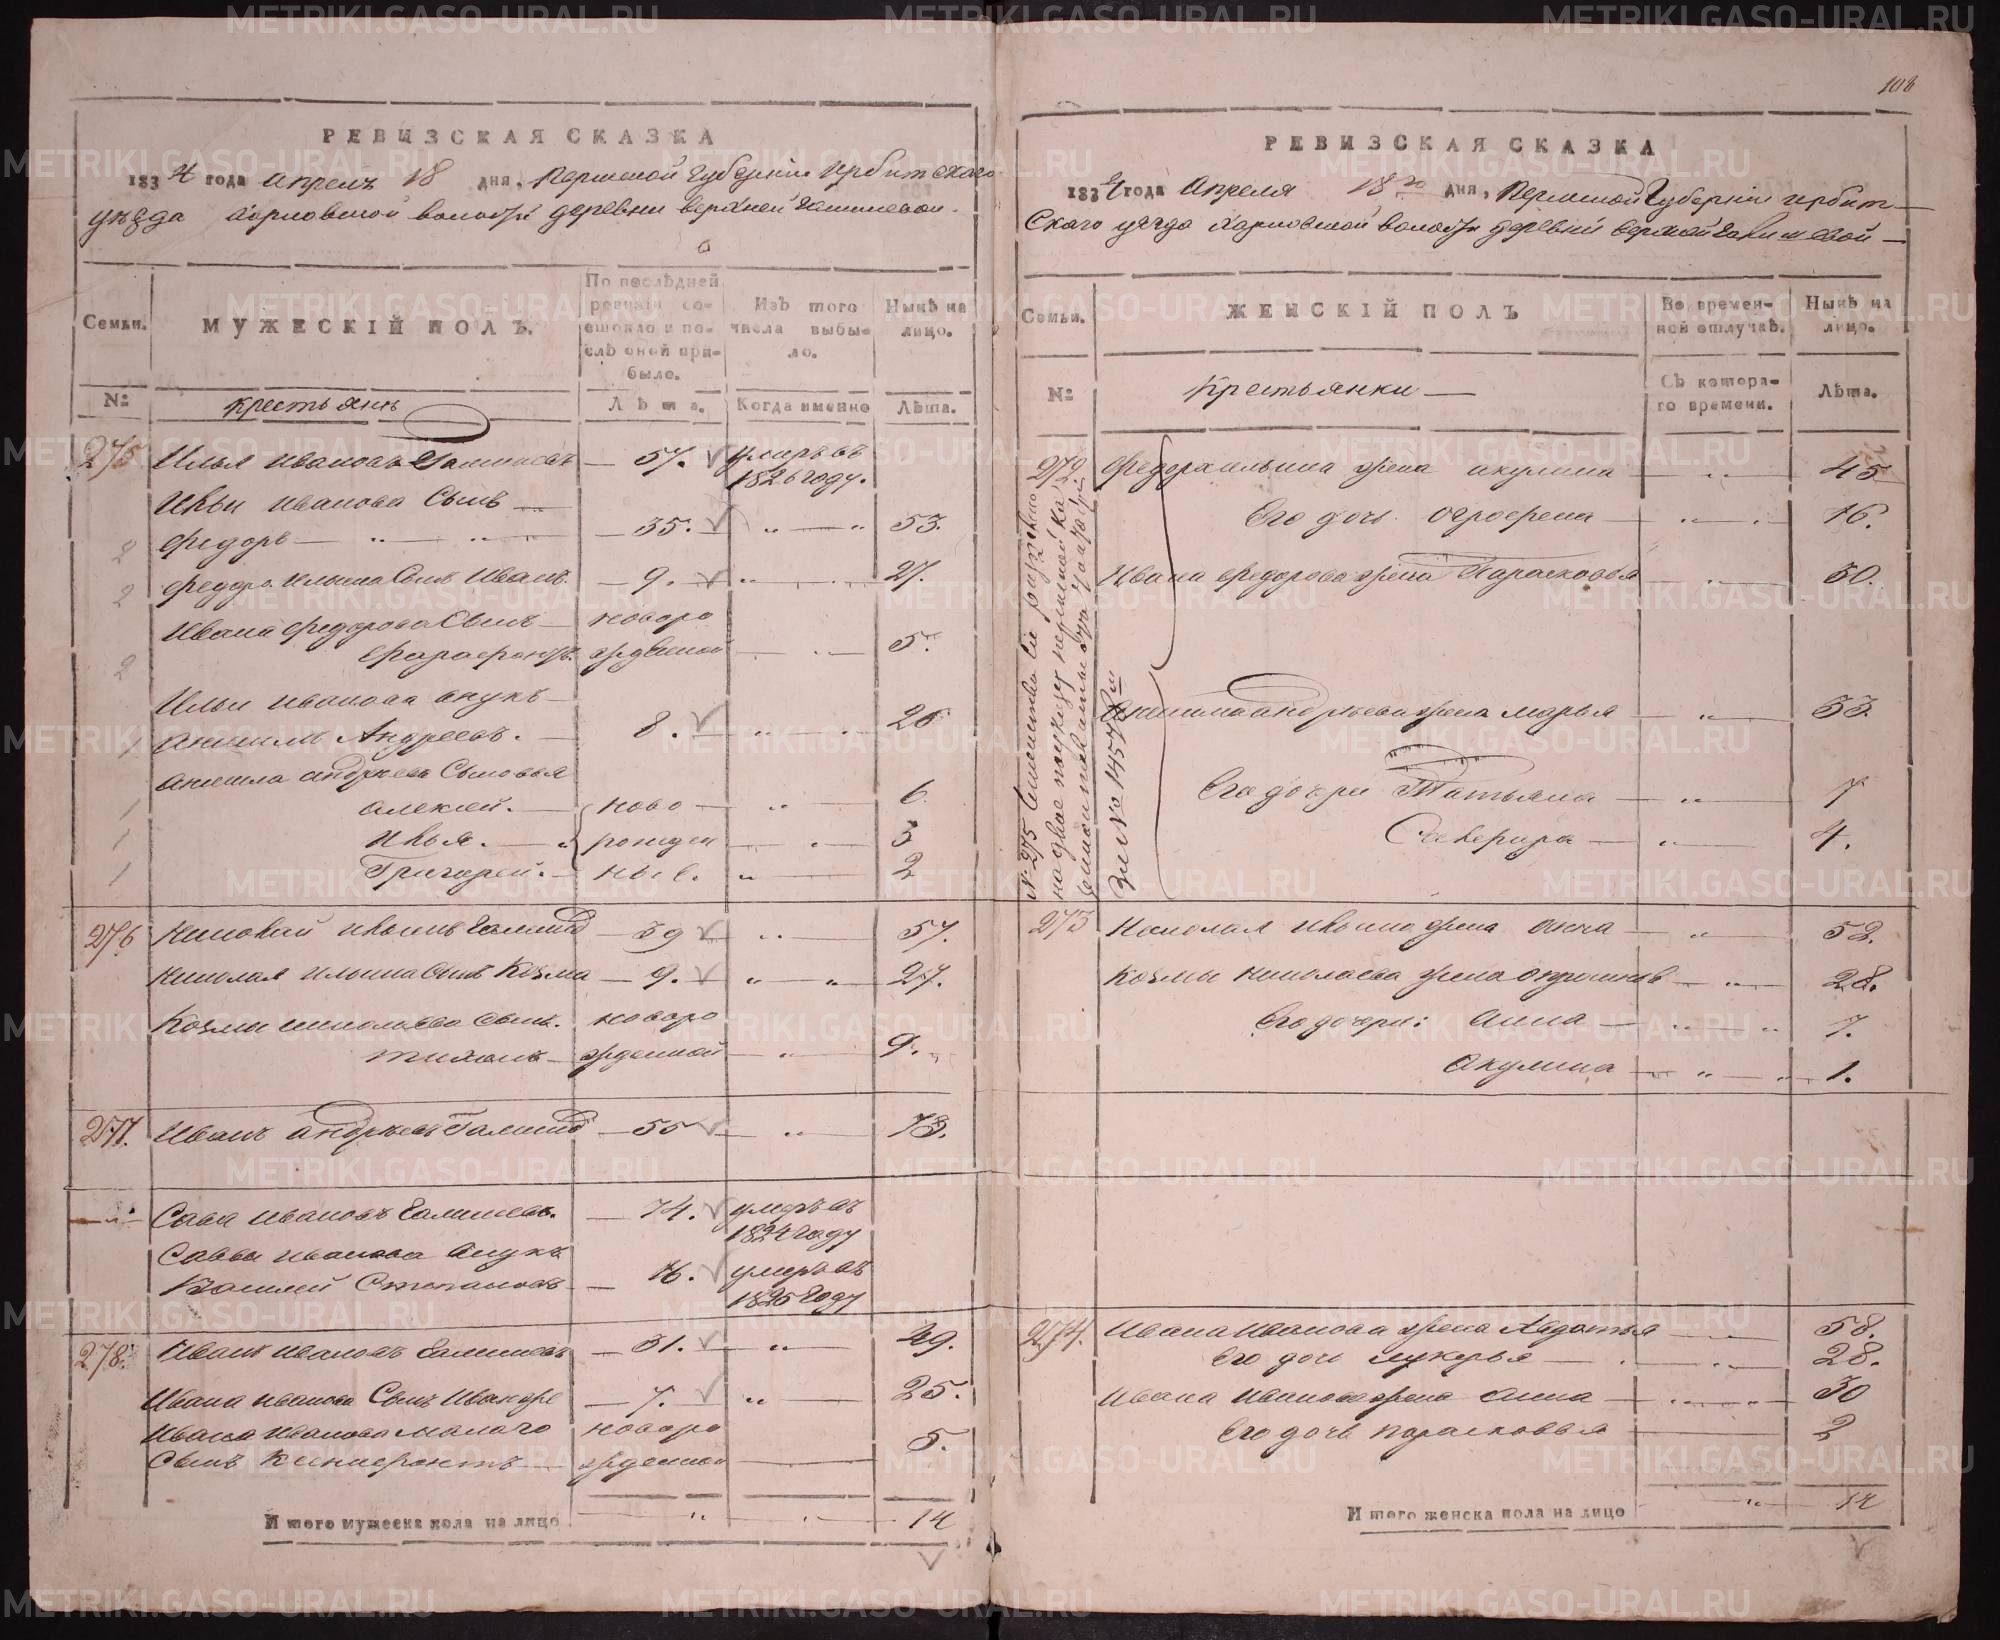 108
РЕВИЗСКАЯ СКАЗКА
1834 года Апреля 18 дня, Пермской Губерніи Ирбитскаго
уезда Харловской волости деревни верхней Галишевой
Семьи.
МУЖЕСКІЙ ПОЛЪ.
По послѣдней ревизіи состояло и послѣ оной прибыло.
Изъ того числа выбыло.
Нынѣ на лицо.
№: крестьянъ Лѣта. Когда именно Лѣта.
275 Илья Ивановъ Галишевъ — 57. умеръ въ 1826 году.
Ильи Иванова Сынъ —
Федоръ — " — " — 35. " — " 53.
2 Федора Ильина Сынъ Иванъ. — 9. — " — 27.
2 Ивана Федорова Сынъ — новоро
жденной — " — 5.
2 Ильи Иванова внукъ —
1 Анисимъ Андреевъ. — 8. — " — 26
Анисима Андреева Сыновья
1 Алексей. — ново — " — 6.
1 Илья. — рожден — " — 3
1 Григорей. — ныѣ. " — 2
276 Николай Ильинъ Галишевъ — 39 — " — 57.
Николая Ильина Сынъ Козма — 9. — " — " — 27.
Козмы Николаева Сынъ. новоро
Тихонъ — жденной — " — 9.
277. Иванъ Андреевъ Галишевъ — 55 — " — 73.
Сава Ивановъ Галишевъ. — 74. умеръ въ 1824 году
Саввы Иванова внукъ
Василей Степановъ — 16. умеръ въ 1825 году
278. Иванъ Ивановъ Галишевъ — 31. — " — 49.
Ивана Иванова Сынъ Иван же — 7. " — 25.
Ивана Иванова малаго новоро
Сынъ Ксенофонтъ — жденной — 5.
Итого мужеска пола на лицо — " — " — 14
РЕВИЗСКАЯ СКАЗКА
1834 года Апреля 18го дня, Пермской Губерніи Ирбит—
Скаго уезда Харловской волости деревни верхней Галишевой —
Семьи.
ЖЕНСКІЙ ПОЛЪ
Во временной отлучкѣ.
Нынѣ на лицо.
№: Крестьянки — Съ котораго времени. Лѣта.
272 Федора Ильина жена Акулина — " — 45
Его дочь Офросенья — " — 16.
Ивана Федорова жена Парасковья — " — 30.
Анисима Андреева жена Марья — " — 33.
Его дочери Татьяна — " — 7
— " — 4.
273 Николая Ильина жена Анна — " — 52.
Козмы Николаева жена — " — 28.
Его дочери: Анна — " — " 7.
Акулина — " — " 1.
274. Ивана Иванова жена Авдотья — 58.
Его дочь Лукерья — " — 28.
Ивана Иванова жена Анна — " — 30
Его дочь Парасковья — 2
Итого женска пола на лицо — " — 14
METRIKI.GASO-URAL.RU